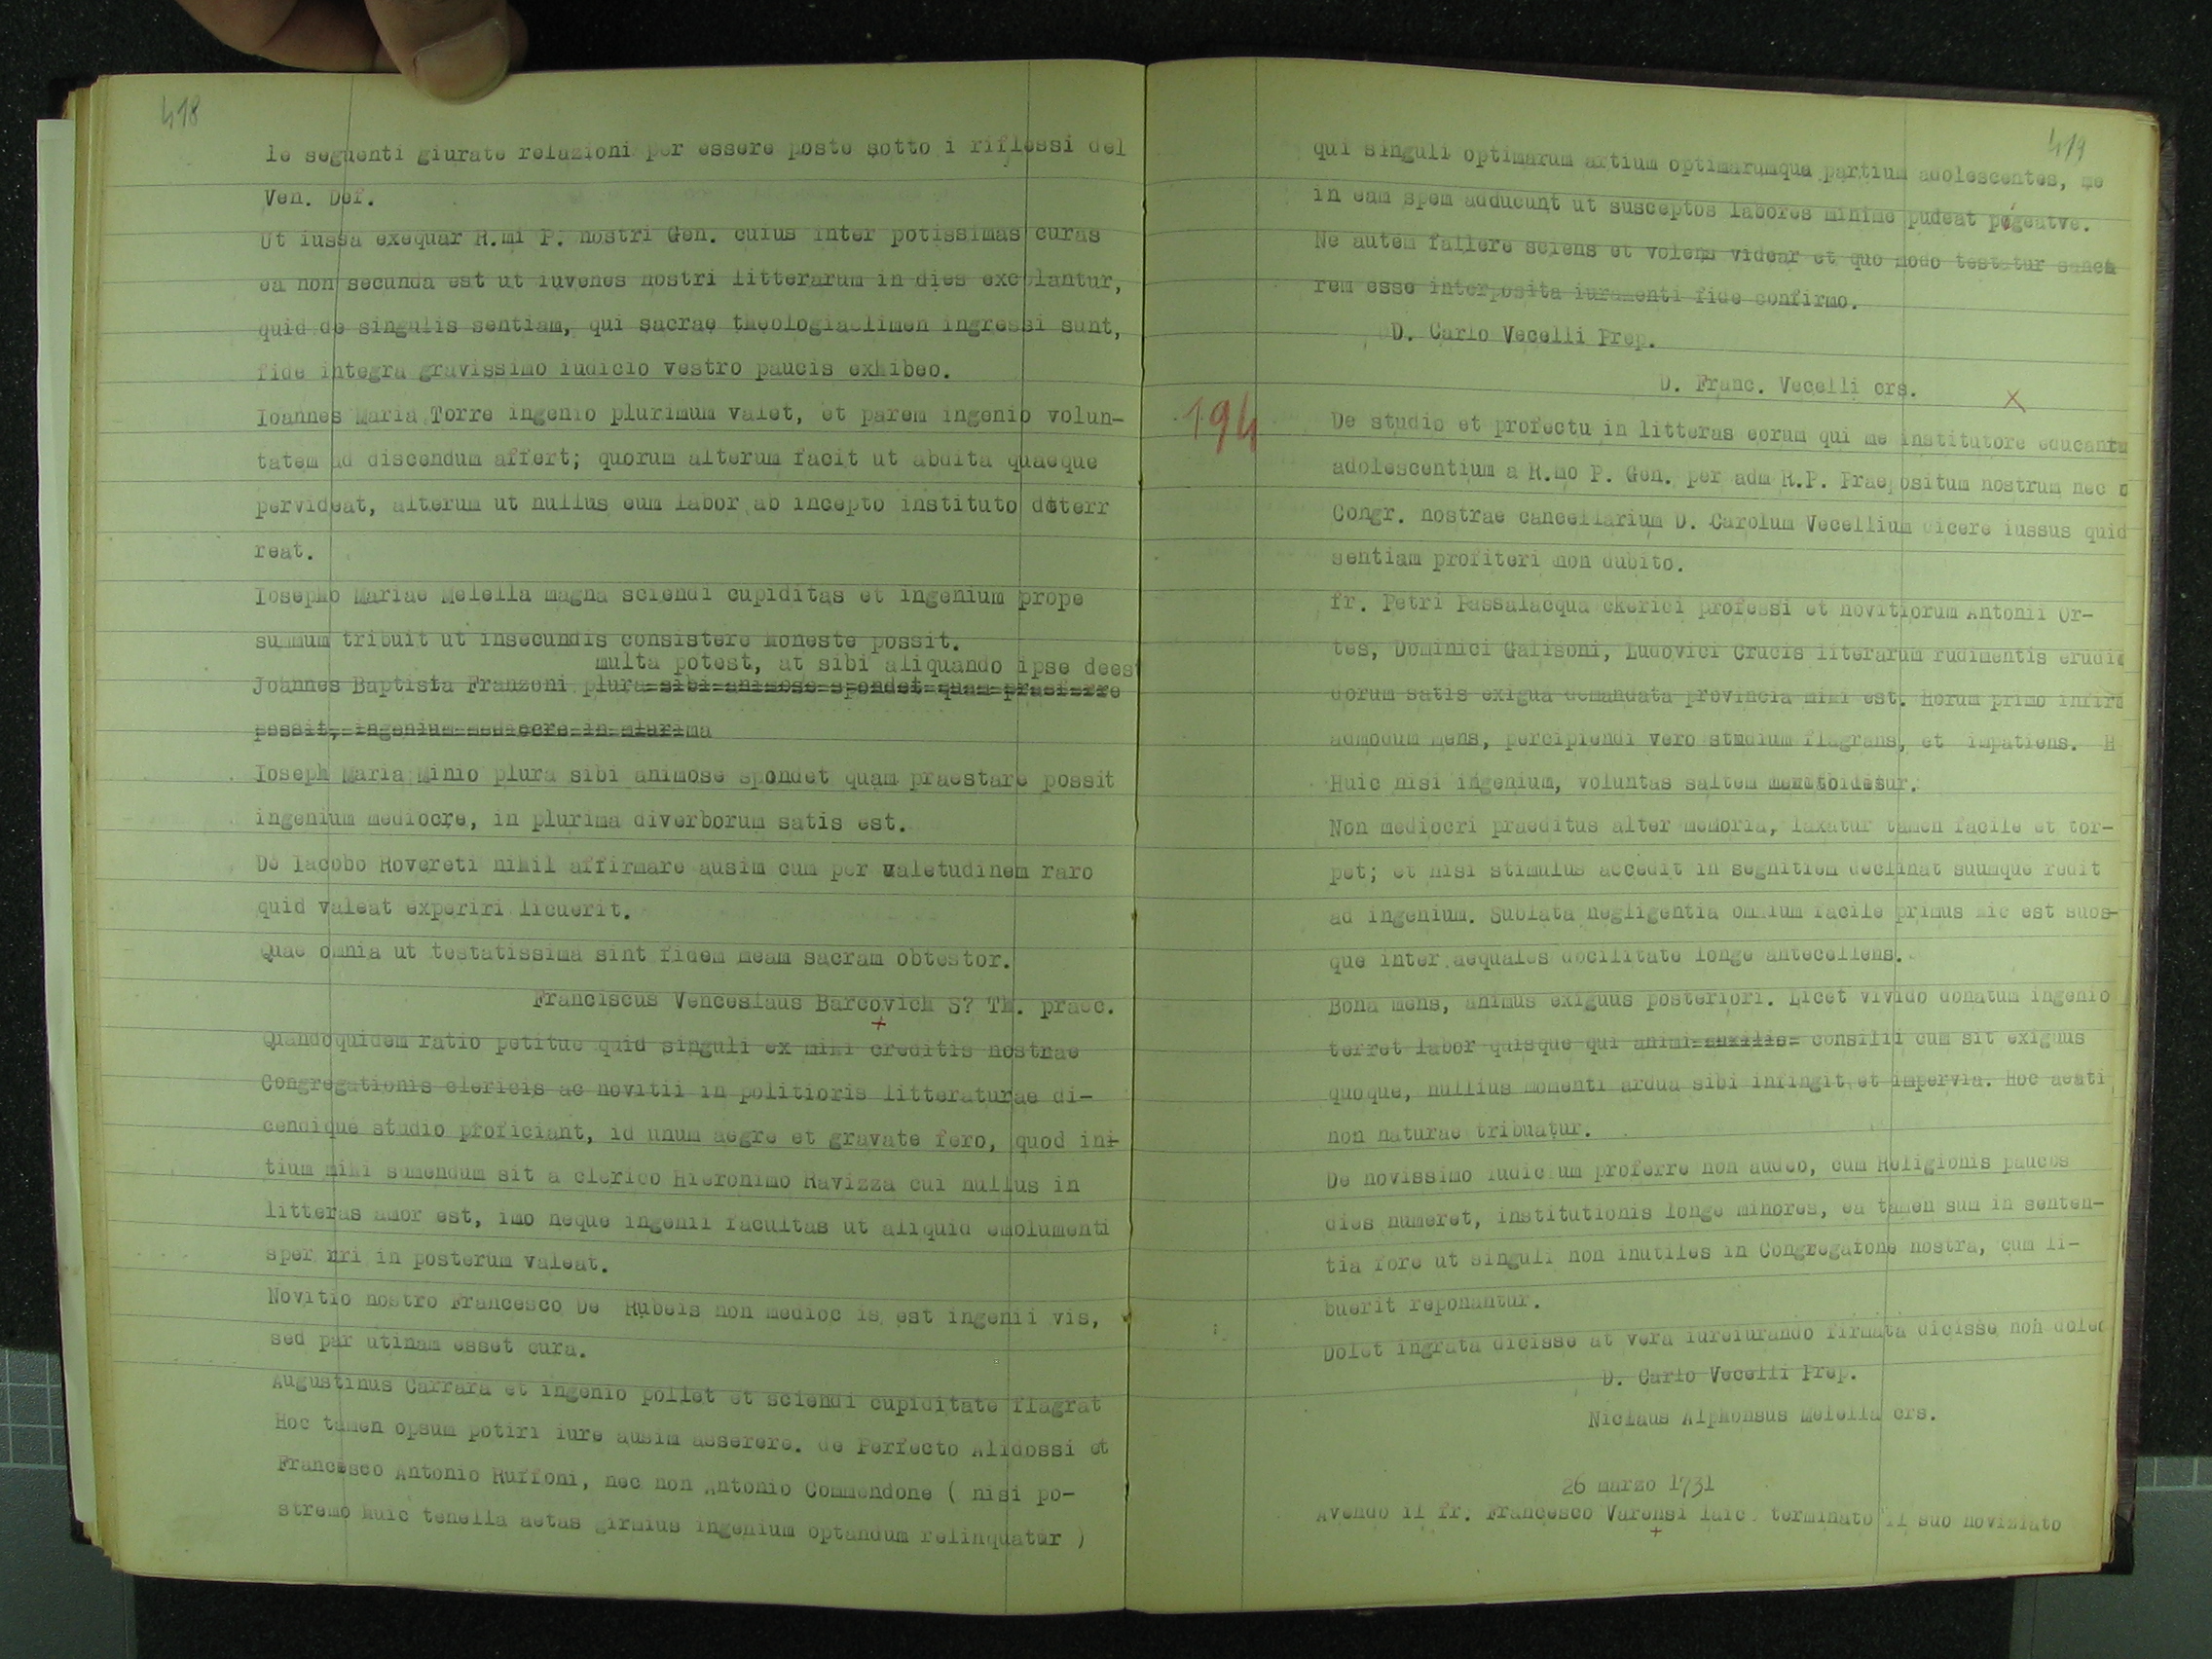 418
le seguenti giurate relazioni per essere poste sotto i riflessi del
Ven. Def.
Ut iussa exequar R.mi P. nostri Gen. cuius inter potissimas curas
ea non secunda est ut iuvenes nostri litterarum in dies exc lantur,
quid de singulis sentiam, qui sacrae theologiaelimen ingressi sunt,
fide integra gravissimo iudicio vestro paucis exhibeo.
Ioannes Maria Torre ingenio plurimum valet, et parem ingenio volun-
tatem ad discendum affert; quorum alterum facit ut abdita quaeque
pervideat, alterum ut nullus eum labor ab incepto instituto deterr
reat.
Iosepho Mariae Melella magna sciendi cupiditas et ingenium prope
summum tribuit ut insecundis consistere honeste possit.
multa potest, at sibi aliquando ipse deest
Joannes Baptista Franzoni plura sibi animose spondet quam praeferre
possit, ingenium mediocre in plurima
Ioseph Maria Minio plura sibi animose spondet quam praestare possit
ingenium mediocre, in plurima diverborum satis est.
De Iacobo Rovereti nihil affirmare ausim cum per valetudinem raro
quid valeat experiri licuerit.
Quae omnia ut testatissima sint fidem meam sacram obtestor.
Franciscus Venceslaus Barcovich S? Th. praec.
+
Quandoquidem ratio petitue quid singuli ex mihi creditis nostrae
Congregationis clericis ac novitii in politioris litteraturae di-
cendique studio proficiant, id unum aegre et gravate fero, quod ini-
tium mihi sumendum sit a clerico Hieronimo Ravizza cui nullus in
litteras amor est, imo neque ingenii facultas ut aliquid emolumenti
sper ri in posterum valeat.
Novitio nostro Francesco De Rubeis non medioc is est ingenii vis,
sed par utinam esset cura.
Augustinus Carrara et ingenio pollet et sciendi cupiditate flagrat
Hoc tamen opsum potiri iure ausim asserere. de Perfecto Alidossi et
Francesco Antonio Ruffoni, nec non Antonio Commendone ( nisi po-
stremo huic tenella aetas girmius ingenium optandum relinquatur )
419
qui singuli optimarum artium optimarumque partium adolescentes, me
in eam spem adducunt ut susceptos labores minime pudeat pigeatve.
Ne autem fallere sciens et volens videar et quo modo testatur sancta
rem esse interposita iuramenti fide confirmo.
D. Carlo Vecelli Prep.
D. Franc. Vecelli crs.
X
194
De studio et profectu in litteras eorum qui me institutore educantu
adolescentium a R.mo P. Gen. per adm R.P. Praepositum nostrum nec
Congr. nostrae cancellarium D. Carolum Vecellium dicere iussus quid
sentiam profiteri non dubito.
fr. Petri Passalacqua ckerici professi et novitiorum Antonii Or-
tes, Dominici Galisoni, Ludovici Crucis literarum rudimentis erudie
dorum satis exigua demandata provincia mihi est. Horum primo infirm
admodum mens, percipiendi vero studium flagrans, et impatiens. H
Huic nisi ingenium, voluntas saltem
Non mediocri praeditus alter memoria, laxatur tamen facile et tor-
pet; et nisi stimulus accedit in segnitiem declinat suumque redit
ad ingenium. Sublata negligentia omnium facile primus hic est suos-
que inter aequales docilitate longe antecellens.
Bona mens, animus exiguus posteriori. Licet vivido donatum ingenio
terret labor quisque qui animi auxilis consilii cum sit exiguus
quoque, nullius momenti ardua sibi infingit et impervia. Hoc aeati
non naturae tribuatur.
De novissimo iudic um proferre non audeo, cum Religionis paucos
dies numeret, institutionis longe minores, ea tamen sum in senten-
tia fore ut singuli non inutiles in Congregatone nostra, cum li-
buerit reponantur.
Dolet ingrata dicisse at vera iureiurando firmata dicisse non dole
D. Carlo Vecelli Prep.
Niclaus Alphonsus Melella crs.
26 marzo 1731
Avendo il fr. Francesco Varensi laic terminato il suo noviziato
+